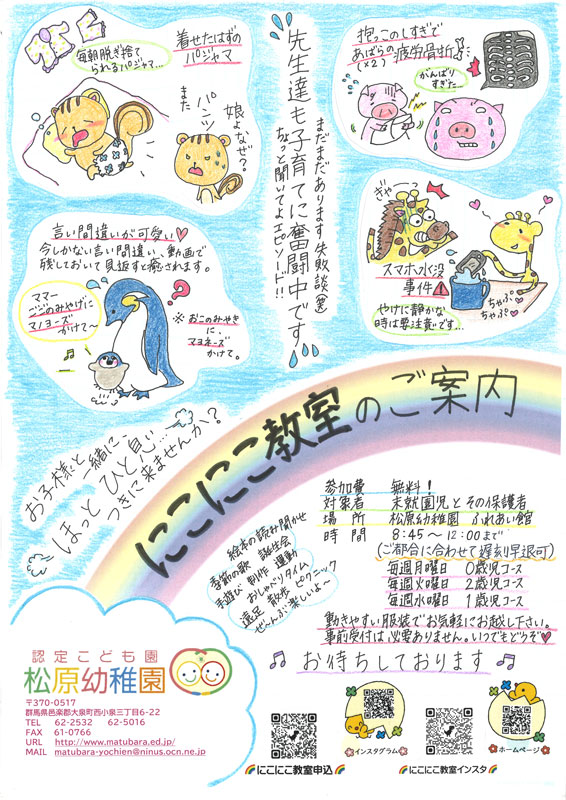 先生達も子育てに奮闘中です
まだまだあります失敗談(笑)
ちょっと聞いてよエピソード!!
着せたはずの
パジャマ
毎朝脱ぎ捨て
られるパジャマ…
娘よなぜ?
パンツ
また
抱っこのしすぎで
あばらの疲労骨折
(×2)
がんばり
すぎた…
言い間違いが可愛い♡
今しかない言い間違い、動画で
残しておいて見返すと癒されます。
ママー
ごこのみやげに
マノヨーズ
かけて〜
※おこのみやきに、
マヨネーズ
かけて。
ぎゃー
スマホ水没
事件
ちゃぷ
ちゃぷ
やけに静かな
時は要注意です…
にこにこ教室のご案内
お子様と一緒に…
ほっとひと息…
つきに来ませんか?
絵本の読み聞かせ
季節の歌 誕生会
手遊び 制作 運動
おしゃべりタイム
遠足 散歩 ピクニック
ぜ〜んぶ楽しいよ〜
参加費 無料!
対象者 未就園児とその保護者
場所 松原幼稚園 ふれあい館
時間 8:45〜12:00まで
(ご都合に合わせて遅刻早退可)
毎週月曜日 0歳児コース
毎週火曜日 2歳児コース
毎週水曜日 1歳児コース
動きやすい服装でお気軽にお越し下さい。
事前受付は必要ありません。いつでもどうぞ♡
♫お待ちしております♫
認定こども園
松原幼稚園
〒370-0517
群馬県邑楽郡大泉町西小泉三丁目6-22
TEL 62-2532 62-5016
FAX 61-0766
URL http://www.matubara.ed.jp/
MAIL matubara-yochien@ninus.ocn.ne.jp
インスタグラム
ホームページ
にこにこ教室申込
にこにこ教室インスタ